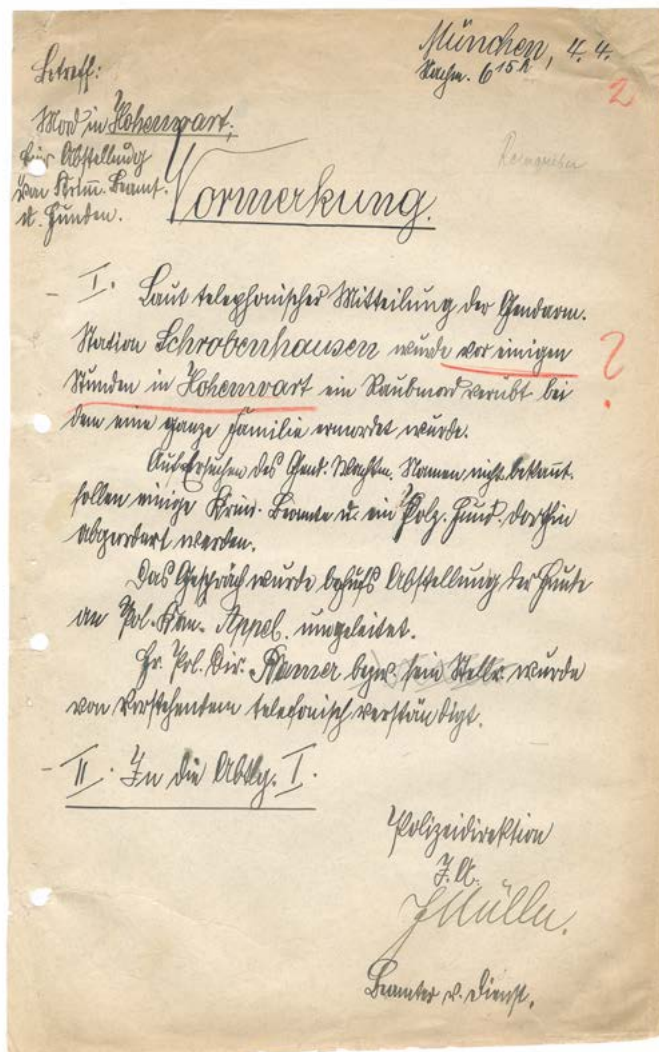 München, 4. 4.
Nachm. 6 15 h
2
Betreff:
Mord in Hohenwart;
hier Abstellung
von Krim. Beamt.
u. Hunden.
Vormerkung.
I. Laut telephonischer Mitteilung der Gendarm.
Station Schrobenhausen wurde vor einigen
?
Stunden in Hohenwart ein Raubmord verübt bei
dem eine ganze Familie ermordet wurde.
Auf Ersuchen des Gend. Wachtm. Namen nicht bekannt.
sollen einige Krim. Beamte u. ein Polz. Hund. dorthin
abgeordert werden.
Das Gespräch wurde behufs Abstellung der Hunde
an Pol. Kom. Appel. umgeleitet.
Hr. Pol. Dir. Ramer bezw. sein Stellv. wurde
von Vorstehendem telefonisch verständigt.
II. In die Abtlg. I.
Polizeidirektion
J. A.
Müller.
Beamter v. Dienst.